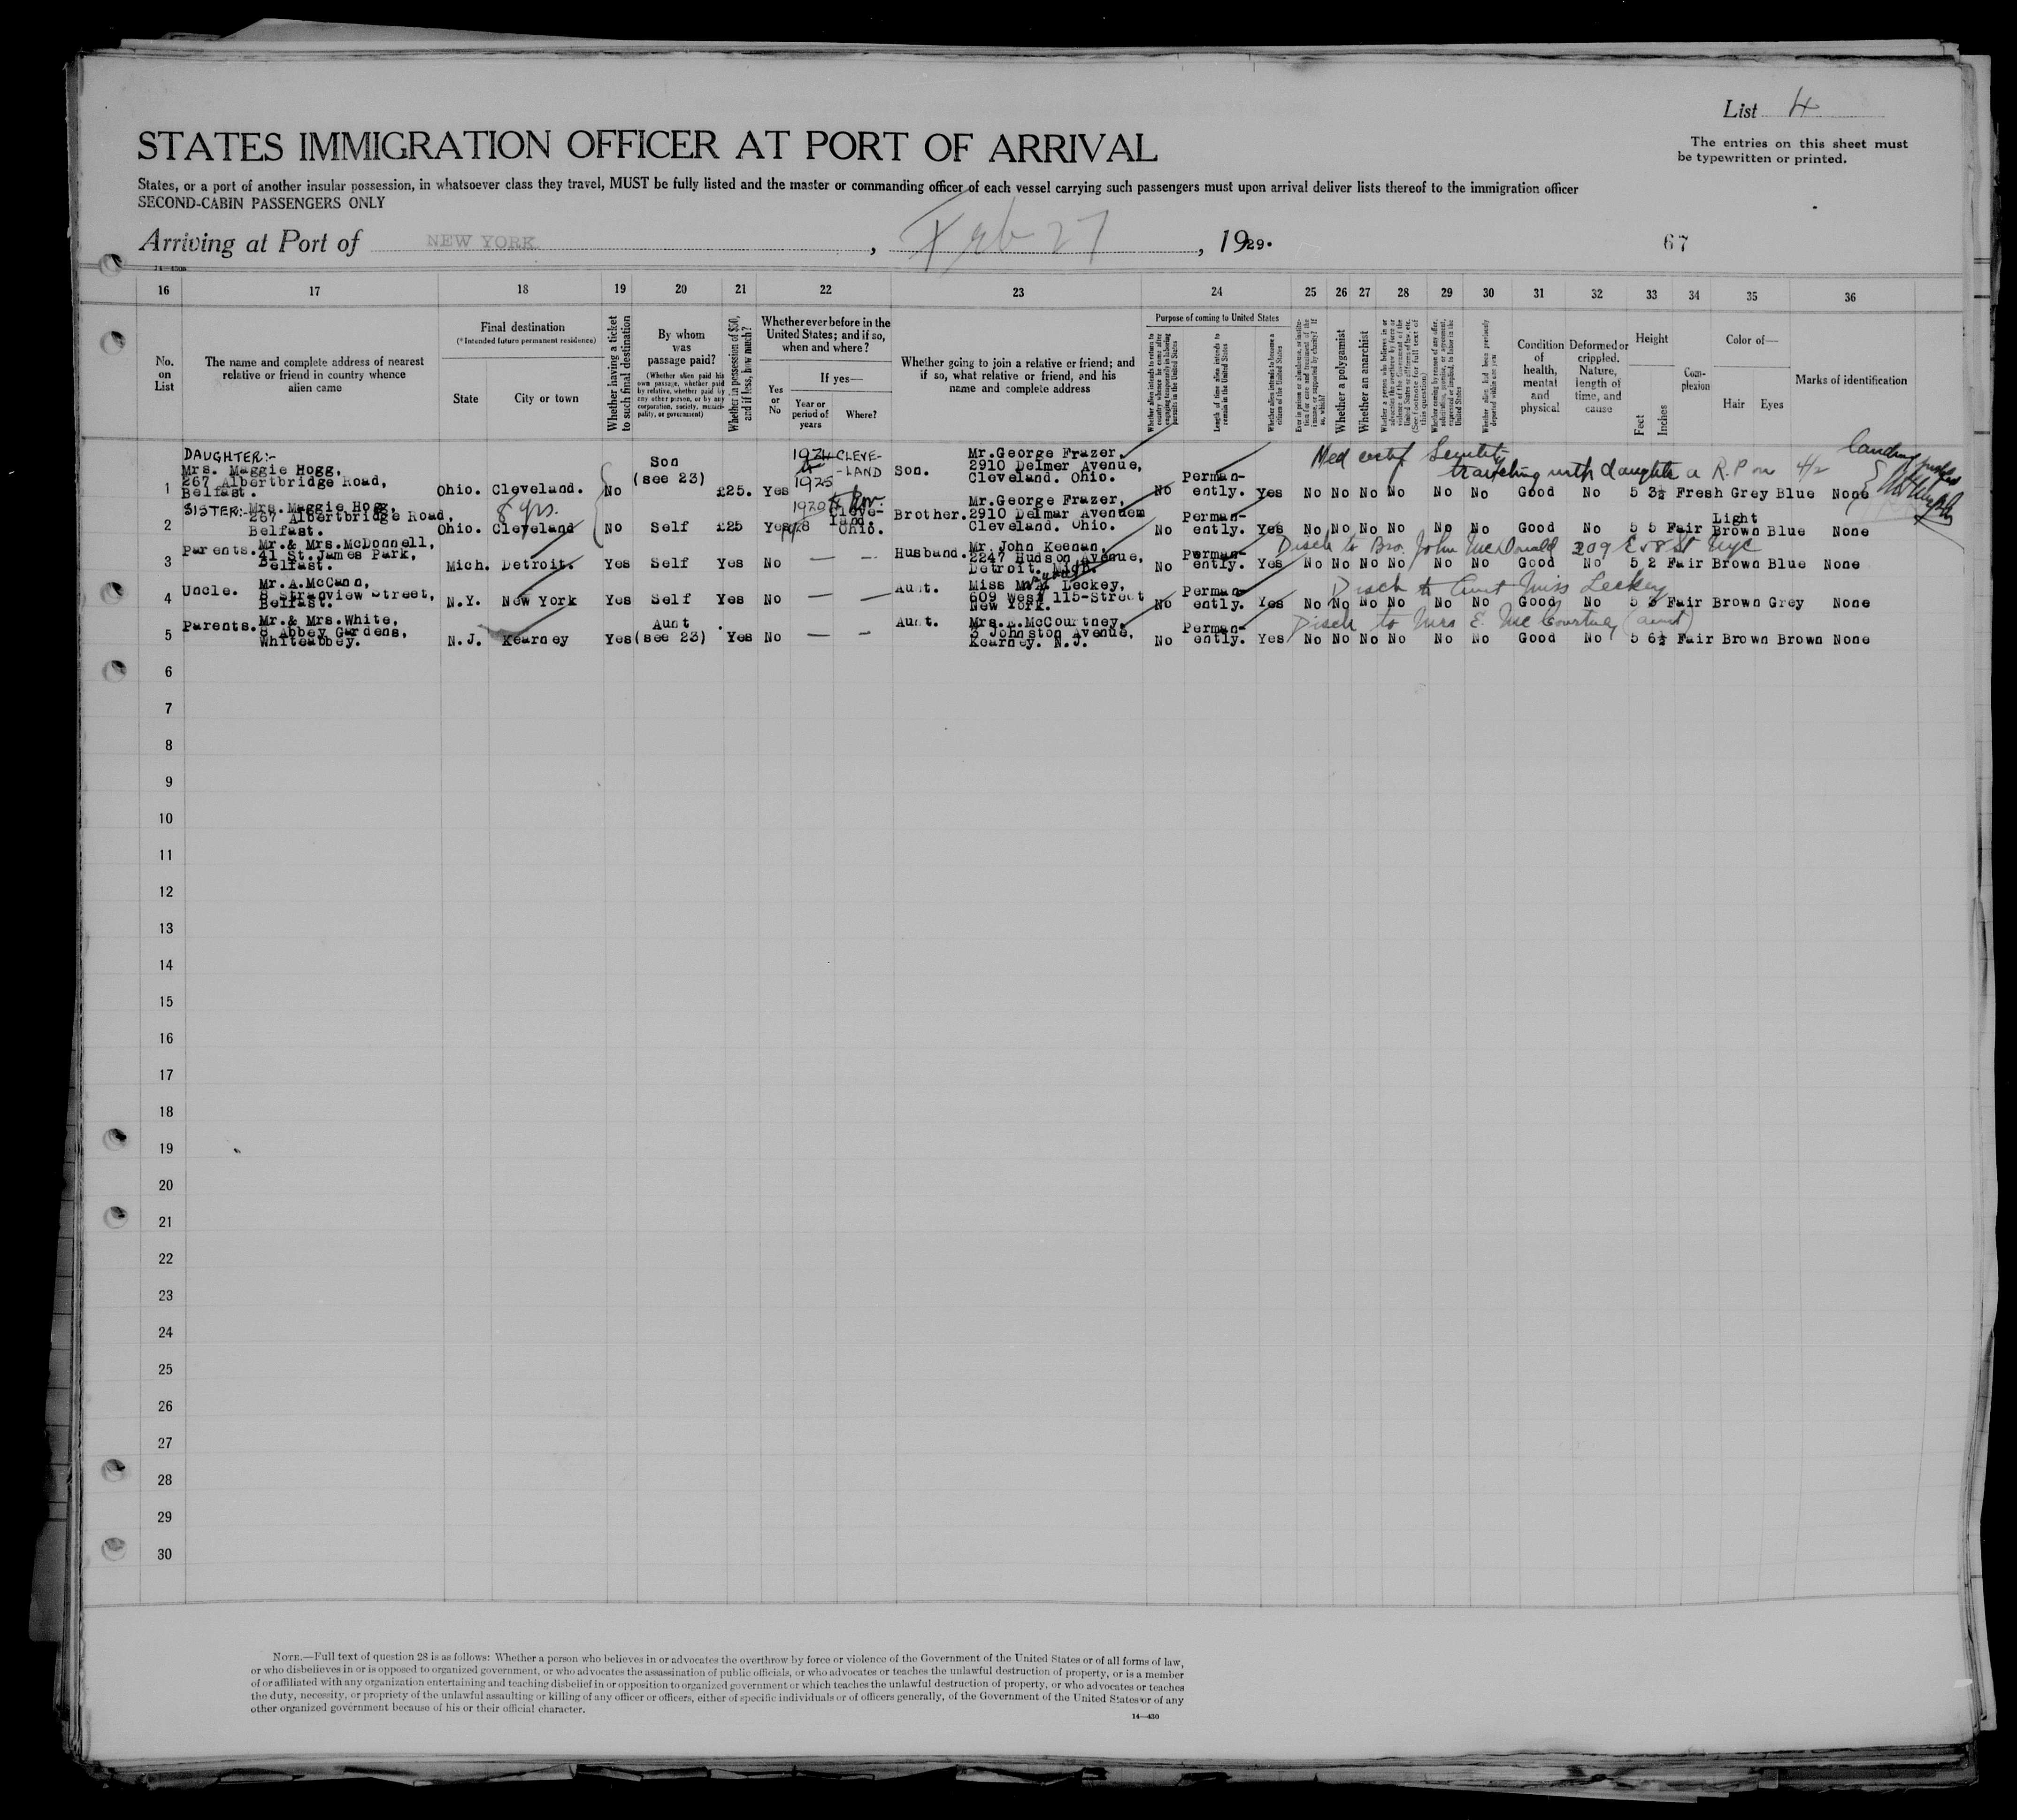 List 4
STATES IMMIGRATION OFFICER AT PORT OF ARRIVAL
The entries on this sheet must
be typewritten or printed.
States, or a port of another insular possession, in whatsoever class they travel, MUST be fully listed and the master or commanding officer of each vessel carrying such passengers must upon arrival deliver lists thereof to the immigration officer
SECOND-CABIN PASSENGERS ONLY
Arriving at Port of NEW YORK, Feb 27, 1929.
67
16 17 18 19 20 21 22 23 24 25 26 27 28 29 30 31 32 33 34 35 36
No. on List
The name and complete address of nearest relative or friend in country whence alien came
Final destination
(*Intended future permanent residence)
State
City or town
Whether having a ticket to such final destination
By whom was passage paid?
(Whether alien paid his own passage, whether paid by relative, whether paid by any other person, or by any corporation, society, municipality, or government)
Whether in possession of $50, and if less, how much?
Whether ever before in the United States; and if so, when and where?
Yes or No
If yes—
Year or period of years
Where?
Whether going to join a relative or friend; and if so, what relative or friend, and his name and complete address
Purpose of coming to United States
Whether alien intends to return to country whence he came after engaging temporarily in laboring pursuits in the United States
Length of time alien intends to remain in the United States
Whether alien intends to become a citizen of the United States
Whether a polygamist
Whether an anarchist
Condition of health, mental and physical
Deformed or crippled. Nature, length of time, and cause
Height
Feet
Inches
Complexion
Color of—
Hair
Eyes
Marks of identification
Med certf Senility
traveling with daughter a R.P on 4/2
landing
DAUGHTER:-
Mrs. Maggie Hogg,
267 Albertbridge Road,
Belfast.
1 Ohio. Cleveland. No Son (see 23) £25. Yes 1924 1925 CLEVE-LAND Son. Mr. George Frazer, 2910 Delmer Avenue, Cleveland. Ohio. No Permanently. Yes No No No No No No Good No 5 3½ Fresh Grey Blue None
SISTER:- Mrs. Maggie Hogg,
267 Albertbridge Road,
Belfast.
2 Ohio. Cleveland 8 yrs. No Self £25 Yes 1920 Cleveland. Ohio. Brother. Mr. George Frazer, 2910 Delmar Avenuem Cleveland. Ohio. No Permanently. Yes No No No No No No Good No 5 5 Fair Light Brown Blue None
Disch to Bro. John McDonald 209 E 58 St NYC
Parents. Mr. & Mrs. McDonnell,
41 St. James Park,
Belfast.
3 Mich. Detroit. Yes Self Yes No — — Husband. Mr. John Keenan, 2247 Hudson Avenue, Detroit. Mich. No Permanently. Yes No No No No No No Good No 5 2 Fair Brown Blue None
Disch to Aunt Miss Leckey
Uncle. Mr. A. McCann,
8 Stranview Street,
Belfast.
4 N.Y. New York Yes Self Yes No — — Aunt. Miss Leckey, 609 West 115-Street New York. No Permanently. Yes No No No No No No Good No 5 3 Fair Brown Grey None
Disch to Mrs E. McCourtney (aunt)
Parents. Mr. & Mrs. White,
8 Abbey Gardens,
Whiteabbey.
5 N.J. Kearney Yes Aunt (see 23) Yes No — — Aunt. Mrs. E. McCourtney, 3 Johnston Avenue, Kearney. N.J. No Permanently. Yes No No No No No No Good No 5 6½ Fair Brown Brown None
6
7
8
9
10
11
12
13
14
15
16
17
18
19
20
21
22
23
24
25
26
27
28
29
30
NOTE.—Full text of question 28 is as follows: Whether a person who believes in or advocates the overthrow by force or violence of the Government of the United States or of all forms of law,
or who disbelieves in or is opposed to organized government, or who advocates the assassination of public officials, or who advocates or teaches the unlawful destruction of property, or is a member
of or affiliated with any organization entertaining and teaching disbelief in or opposition to organized government or which teaches the unlawful destruction of property, or who advocates or teaches
the duty, necessity, or propriety of the unlawful assaulting or killing of any officer or officers, either of specific individuals or of officers generally, of the Government of the United States or of any
other organized government because of his or their official character.
14—430